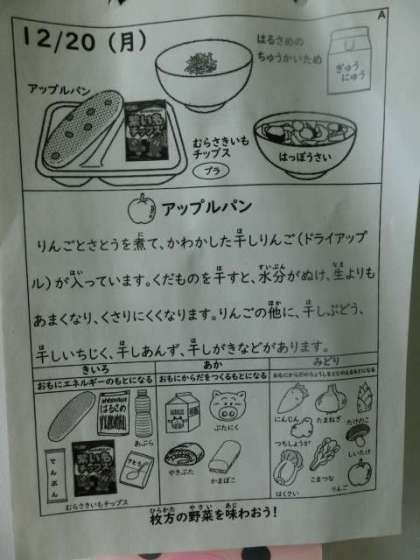 A
12/20（月）
はるさめの
ちゅうかいため
ぎゅう
にゅう
アップルパン
むらさきいも
チップス
プラ
はっぽうさい
アップルパン
りんごとさとうを煮て、かわかした干しりんご（ドライアップ
ル）が入っています。くだものを干すと、水分がぬけ、生よりも
あまくなり、くさりにくくなります。りんごの他に、干しぶどう、
干しいちじく、干しあんず、干しがきなどがあります。
きいろ
おもにエネルギーのもとになる
はるさめ
あぶら
でんぷん
さとう
むらさきいもチップス
あか
おもにからだをつくるもとになる
ぶたにく
やきぶた
かまぼこ
みどり
おもにからだのちょうしをととのえるもとになる
にんじん
たまねぎ
たけのこ
つちしょうが
しいたけ
はくさい
こまつな
りんご
枚方の野菜を味わおう！